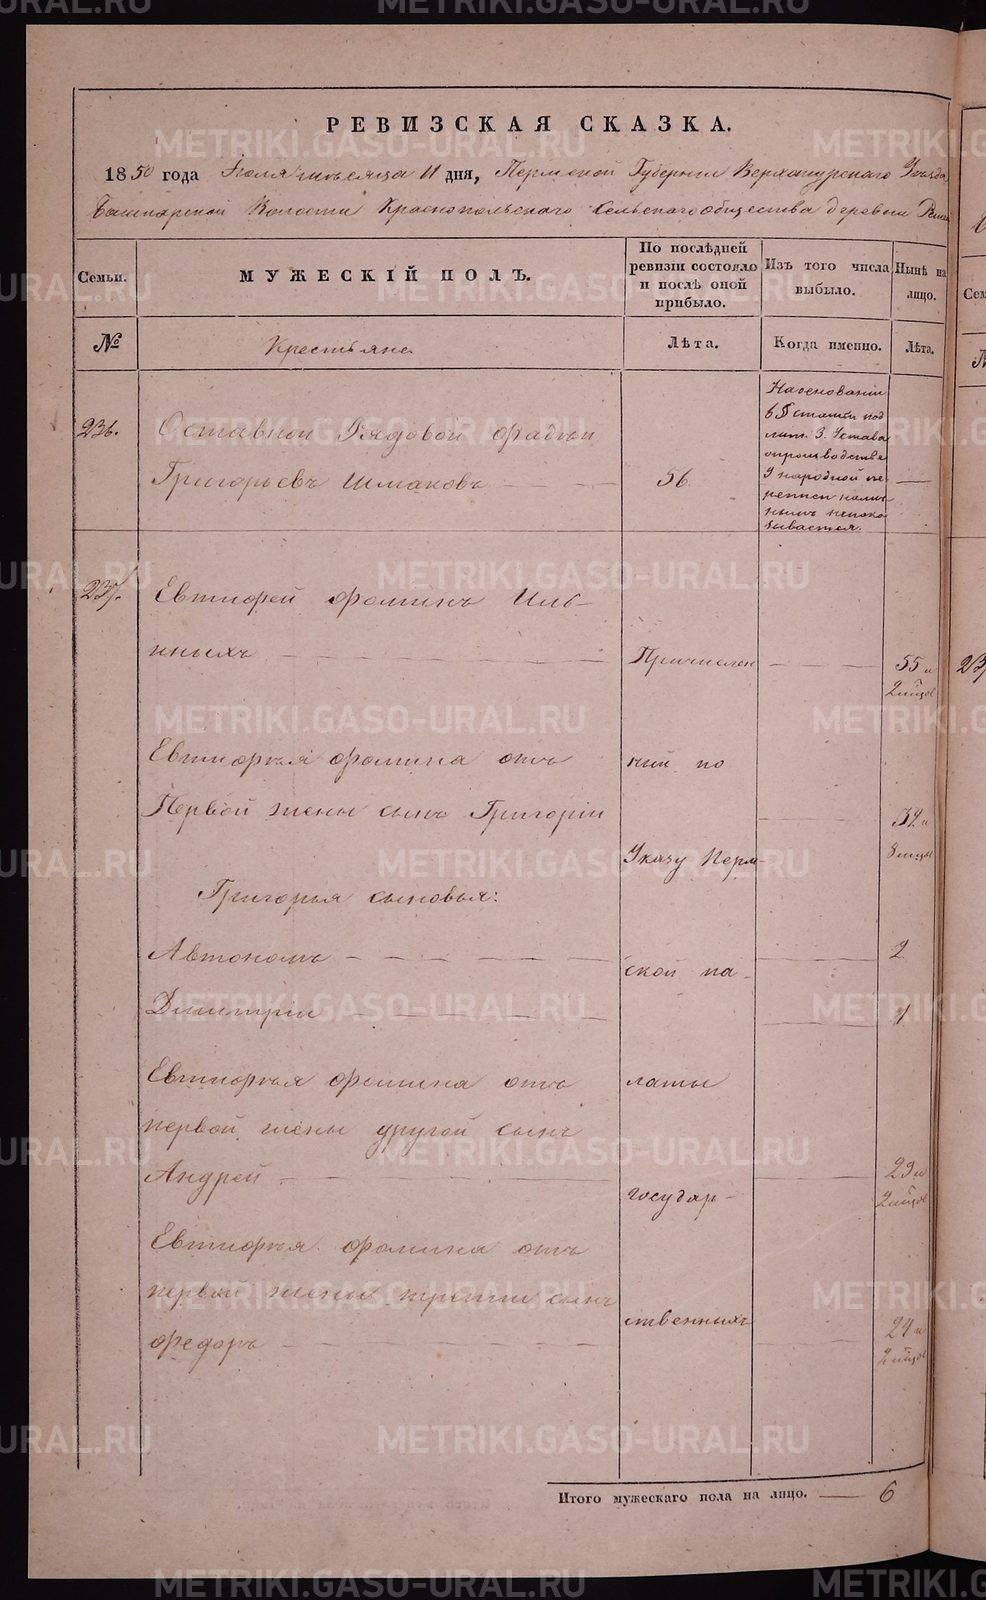 РЕВИЗСКАЯ СКАЗКА.
1850 года Июля месяца 11 дня, Пермской Губернии Верхотурского Уезда
Башкарской Волости Краснопольского Сельского общества деревни
Семьи.
МУЖЕСКІЙ ПОЛЪ.
По послѣдней ревизіи состояло и послѣ оной прибыло.
Изъ того числа выбыло.
Нынѣ на лицо.
№
Крестьяне
Лѣта.
Когда именно.
Лѣта.
236.
Оставной Рядовой Фадей
Григорьевъ Шмаковъ
56
На основании
6 статьи под
лит. З. Устава
о производстве
9 народной пе
реписи
нымъ непока
зывается.
237.
Евтифей Фоминъ Иль-
иныхъ
Причислен
55 и
2 мѣсяц
Евтифья Фомина отъ
ный по
Первой жены сынъ Григорій
8 мѣсяц
Указу Перм-
Григорья сыновья:
Автономъ
2
ской па-
Димитрій
1
Евтифья Фомина отъ
латы
первой жены другой сынъ
Андрей
29 и
2 мѣсяц
государ-
Евтифья Фомина отъ
первой жены третий сынъ
ственныхъ
Федоръ
24 и
2 мѣсяц
Итого мужескаго пола на лицо.
6
METRIKI.GASO-URAL.RU